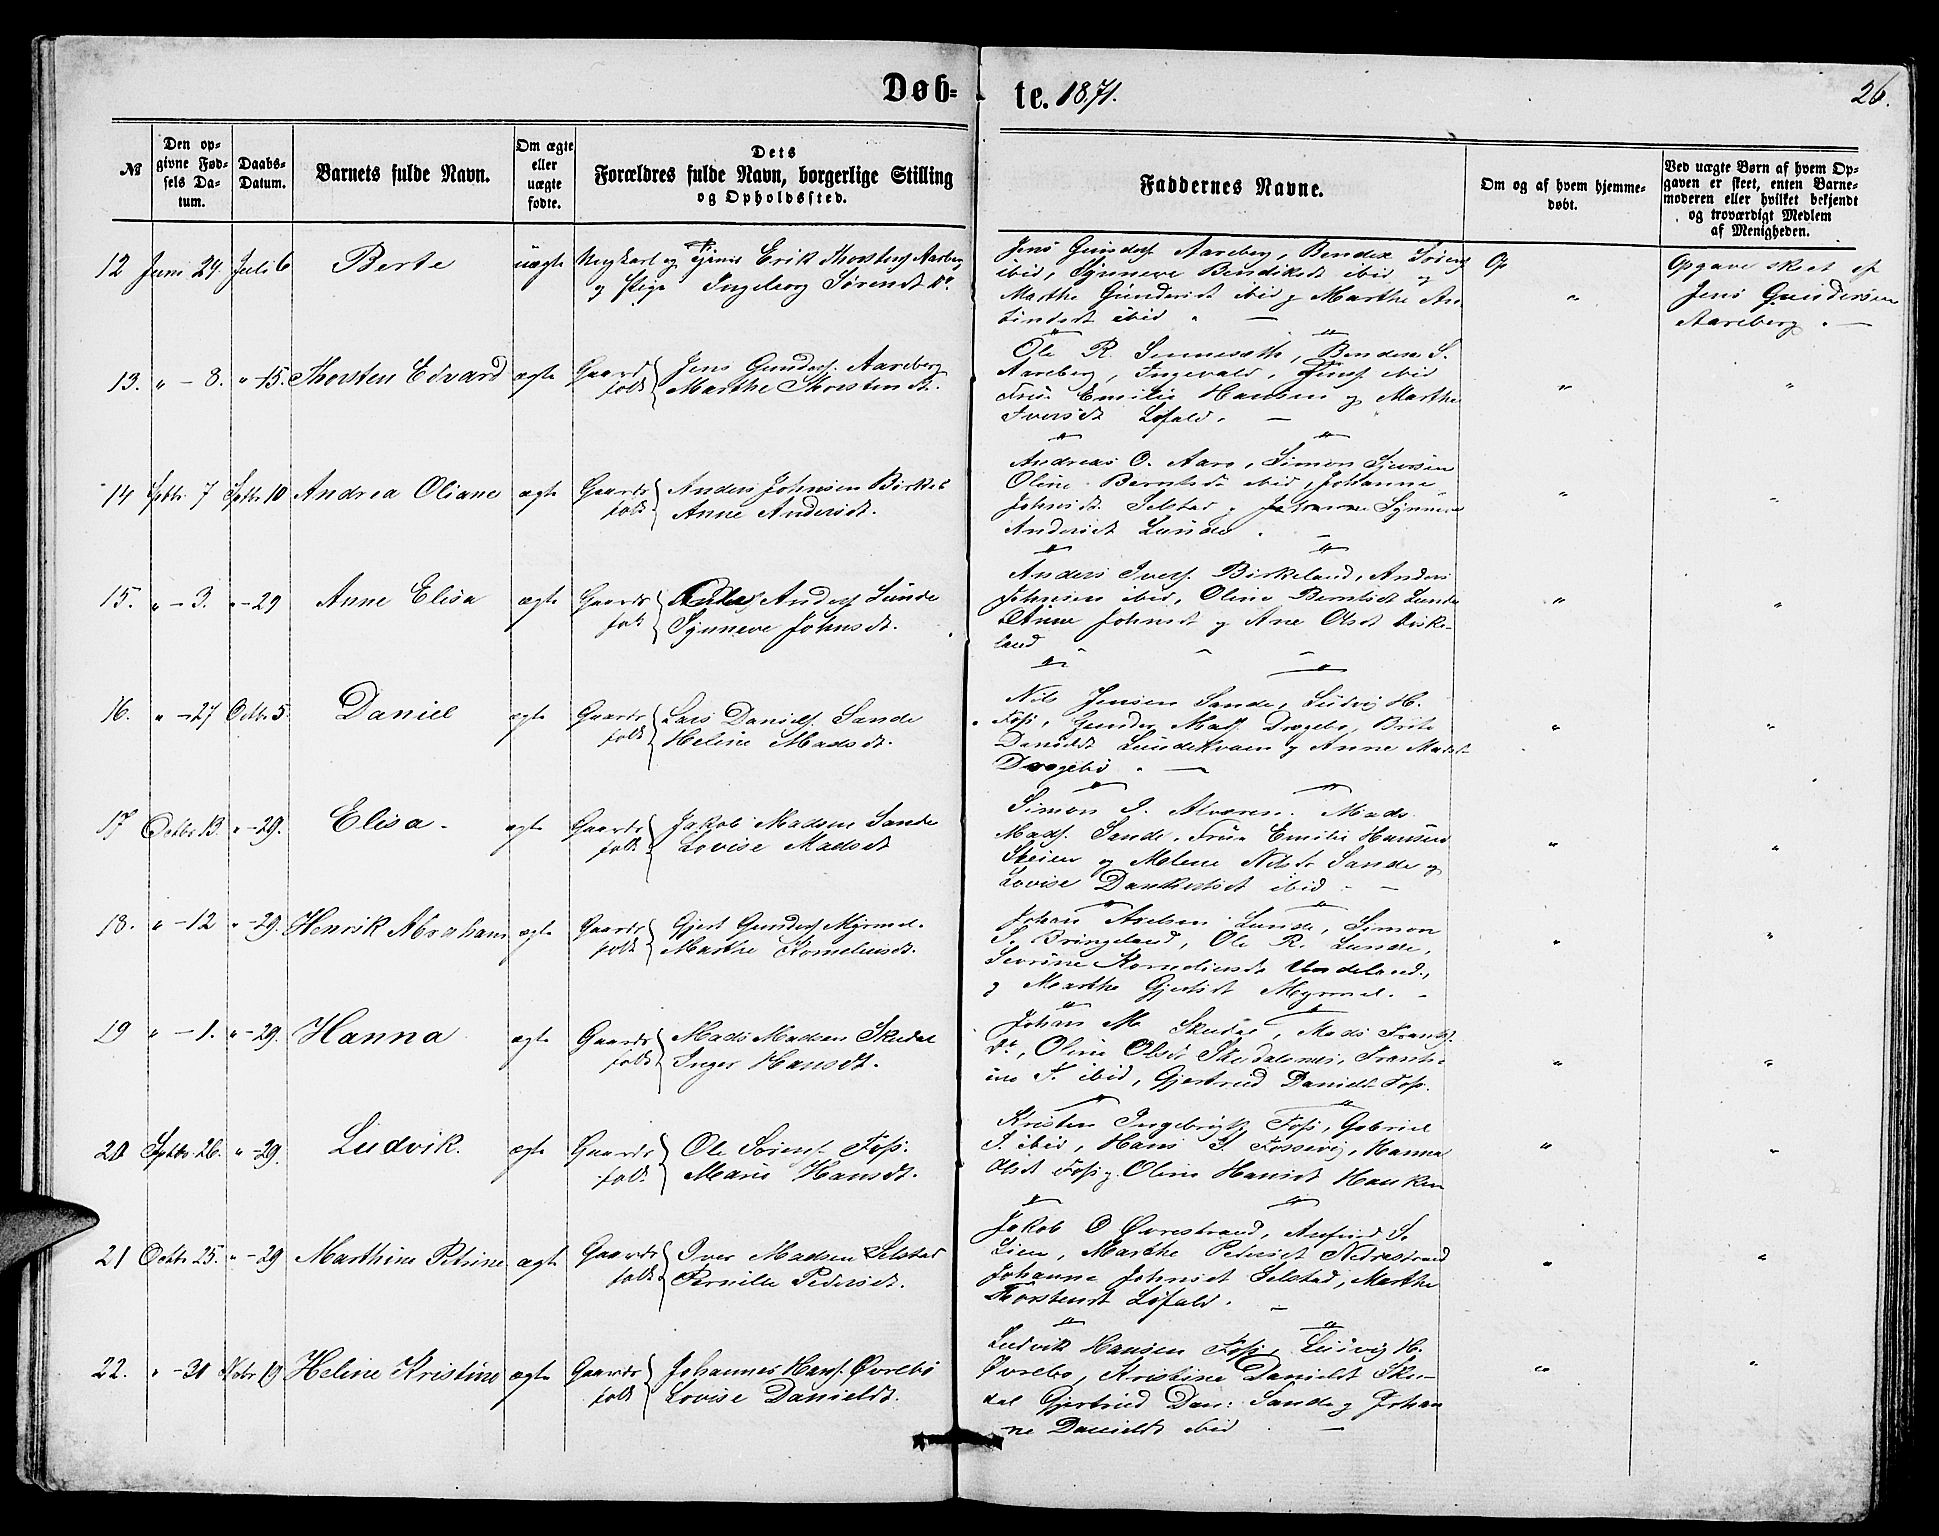 Døb-te. 1871.
26.
№
Den op-
givne Fød-
sels Da-
tum.
Daabs-
Datum.
Barnets fulde Navn.
Om ægte
eller
uægte
fødte.
Dets
Forældres fulde Navn, borgerlige Stilling
og Opholdssted.
Faddernes Navne.
Om og af hvem hjemme-
døbt.
Ved uægte Børn af hvem Op-
gaven er skeet, enten Barne-
moderen eller hvilket bekjendt
og troværdigt Medlem
af Menigheden.
12 Juni 24. Juli 6 Berte uægte Ungkarl og Erik Aarberg
og Pige Ingeborg Sørensdt. do.
Jens Gunders. Aareberg, Bendix
ibid, Synneve Bendiksdt. ibid og
Marthe Gundersdt ibid og Marthe An-
ibid
Opgave skeet af
Jens Gundersen
Aareberg. —
13. " – 8. " – 15. Thorsten Edvard ægte Gaard
folk Jens Gunders. Aareberg
Marthe Thorstensdt.
Ole R. , Bendix S.
Aareberg, Ingevald, ibid
Frue Emilie Hansen og Marthe
Iversdt Løfald. —
14 Sptbr 7 Sptbr 10 Andrea Oliane ægte Gaard
folk Anders Johnsen
Anne Andersdt.
Andreas O. Aarø, Simon
Oline Berntsdt ibid, Johanne
Johnsdt. Selstad og Synneve
Andersdt Lunde.
15. " – 3. " – 29 Anne Elisa ægte Gaards
folk Anders. Sunde
Synneve Johnsdt.
Anders Ivers. Birkeland, Anders
Johnsen ibid, Oline Berntsdt Lunde
Johnsdt og Ane Olsdt Birke-
land
16. " – 27 Octbr 5. Daniel ægte Gaards
folk Lars Daniels. Sande
Heline Madsdt.
Nils Jensen Sande, Ludvig H.
Foss, Gunder Mads. Drægebø, Brite
Danieldt Lundekvam og Anne Madsdt
Drægebø. —
17 Octbr 13. " – 29. Elisa. ægte Gaards
folk Jakob Madsen Sande
Lovise Madsdt
Simon I. Alværen. Mads
Mads. Sande, Frue Emilie Hansen
Steien og Malene Nilsdt Sande og
Lovise ibid —
18. " – 12 " – 29. Henrik Abraham ægte Gaards
folk Gjert Gunders. Myrmel.
Marthe Korneliusdt.
Johan Axelsen Lunde, Simon
S. Bringeland, Ole R. Lunde,
Severine Korneliusdt. Undeland,
og Marthe Gjertsdt Myrmel. –
19 " – 1. " – 29. Hanna ægte Gaards
folk Mads Madsen Skudal
Inger Hansdt.
Johan M. Skudal, Mads
do, Oline Olsdt Skudalsnes,
ibid, Gjertrud Danieldt Foss.
20 Sptbr. 26. " – 29. Ludvik. ægte Gaards
folk Ole Sørens. Foss.
Marie Hansdt.
Kristen Ingebrigts. Foss, Gabriel
ibid, Hans S. Fossevig, Hanna
Olsdt Foss og Oline Hansdt
21 Octbr 25. " – 29 Marthine Petrine ægte Gaards
folk Iver Madsen Selstad
Pernille Pedersdt.
Jakob O Øvrestrand, Anfind S.
Lien, Marthe Pedersdt Nedrestrand
Johanna Johnsdt Selstad, Marthe
Thorstensdt Løfald. —
22. " – 31 Novbr 19 Heline Kristine ægte Gaards
folk Johannes Hans. Øvrebø
Lovise Danieldt.
Ludvik Hansen Foss, Ludvig H.
Øvrebø, Kristine Danieldt Sku-
dal Gjertrud Dan: Sande og Johan
ne Danieldt ibid —